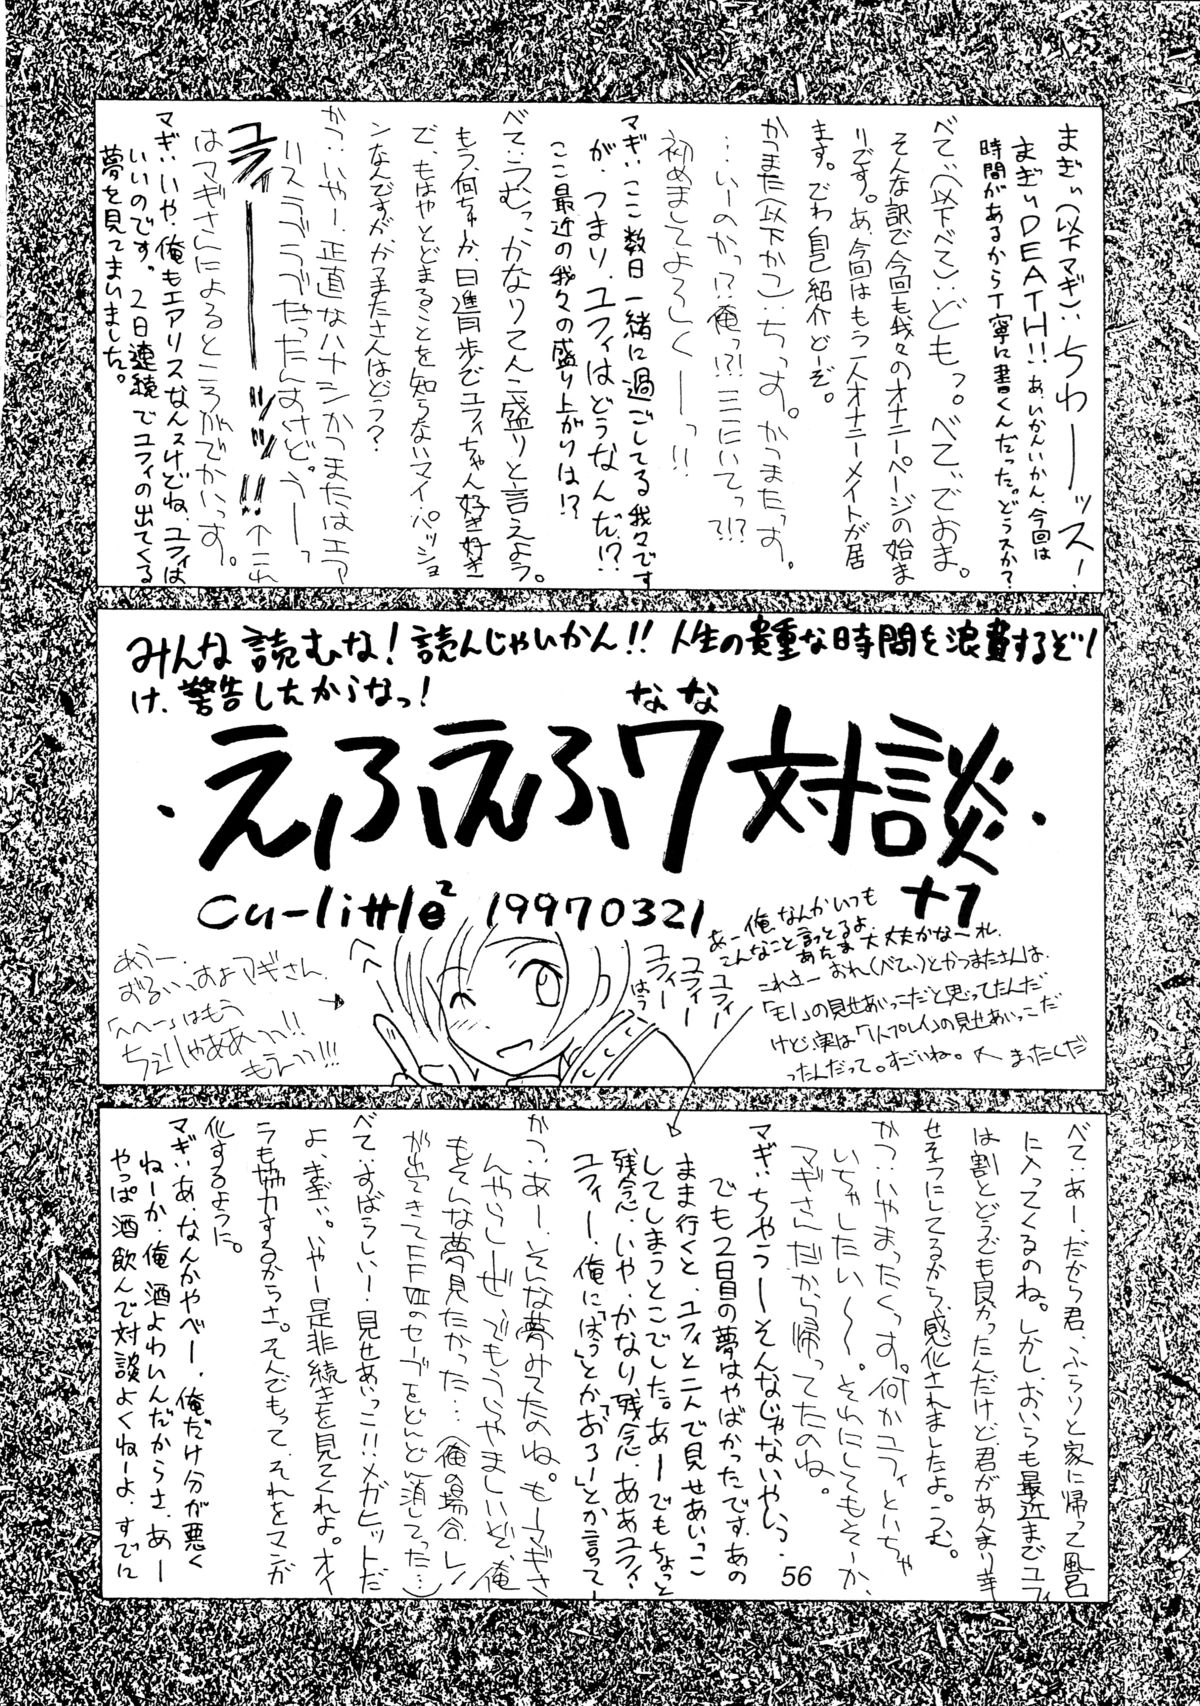 まぎぃ(以下マギ):ちわーーッス!
まぎぃDEATH!!あ、いかんいかん、今回は
時間があるから丁寧に書くんだった。どうスか?
べてぃ(以下べて):どもっ。べてでおま。
そんな訳で今回も我々のオナニーページの始ま
りです。あ、今回はもう一人オナニーメイトが居
ます。でわ自己紹介どーぞ。
かつまた(以下かつ):ちっす。かつまたっす。
…いーのかっ!?俺っ!?ここにいてっ?!?
初めましてよろしくーーっ!!
マギ:ここ数日一緒に過ごしてる我々です
が、つまり、ユフィはどうなんだ!?
ここ最近の我々の盛り上がりは!?
べて:うむっかなりてんこ盛りと言えよう。
もう、何ちゅーか、日進月歩でユフィちゃん好き好き
で、もはやとどまることを知らないマイ・パッショ
ンなんですがかつまたさんはどう?
かつ:いやー、正直なハナシかつまたはエア
リスラブラブだったんすけどぅーっ
ユラーーーーッッ!!↑これ
はマギさんによるところがでかいっす。
マギ:いや、俺もエアリスなんスけどね、ユフィは
いいのです。2日連続でユフィの出てくる
夢を見てまいました。
みんな読むな!読んじゃいかん!!人生の貴重な時間を浪費するぞ!
け、警告したからなっ!
なな
・えふえふ7対談・
Cu-little2 19970321 +1
あー俺なんかいつも
こんなこと言っとるよ。
あたま大丈夫かな〜れ。
これさー おれ(べてぃ)とかつまたさんは、
「モノ」の見せあいっこだと思ってたんだ
けど、実は「1人プレイ」の見せあいっこだ
ったんだって。すごいね。 へ まったくだ
ユフィー
ユフィー
ユフィー
はう
へへ
あうー、
ずるいっすよマギさん、
「へへー」はもう
ちぇりゃああっっ!!
もえっっ!!!
べて:あー、だから君、ふらりと家に帰って風呂
に入ってくるのね。しかし、おいらも最近までユフィ
は割とどうでも良かったんだけど、君があんまり幸
せそうにしてるから、感化されましたよ。うむ。
かつ:いやまったくっす。何かユフィといちゃ
いちゃしたい〜〜。それにしてもそーか、
マギさんだから帰ってたのね。
マギ:ちゃうーーそんなじゃないやいっ。
でも2日目の夢はやばかったです。あの
まま行くと、ユフィと二人で見せあいっこ
してしまうとこでした。あーーでもちょっと
残念、いや、かなり残念、ああユフィ・
ユフィー、俺に「ばっ」とか「おろー」とか言って―
かつ:あー、そんな夢みてたのね。もーマギさ
んやらしーぜ。でもうらやましいぞ、俺
もそんな夢見たかった…(俺の場合、レノ
が出てきてFFⅦのセーブをどんどん消してった…)
べて:すばらしい!見せあいっこ!!メガヒットだ
よ、まぎぃ。いやー是非続きを見てくれよ。オイ
ラも協力するからさ。そんでもって、それをマンガ
化するように。
マギ:あ、なんかやべー、俺だけ分が悪く
ねーか、俺酒よわいんだからさ、あー
やっぱ酒飲んで対談よくねーよ、すでに
56